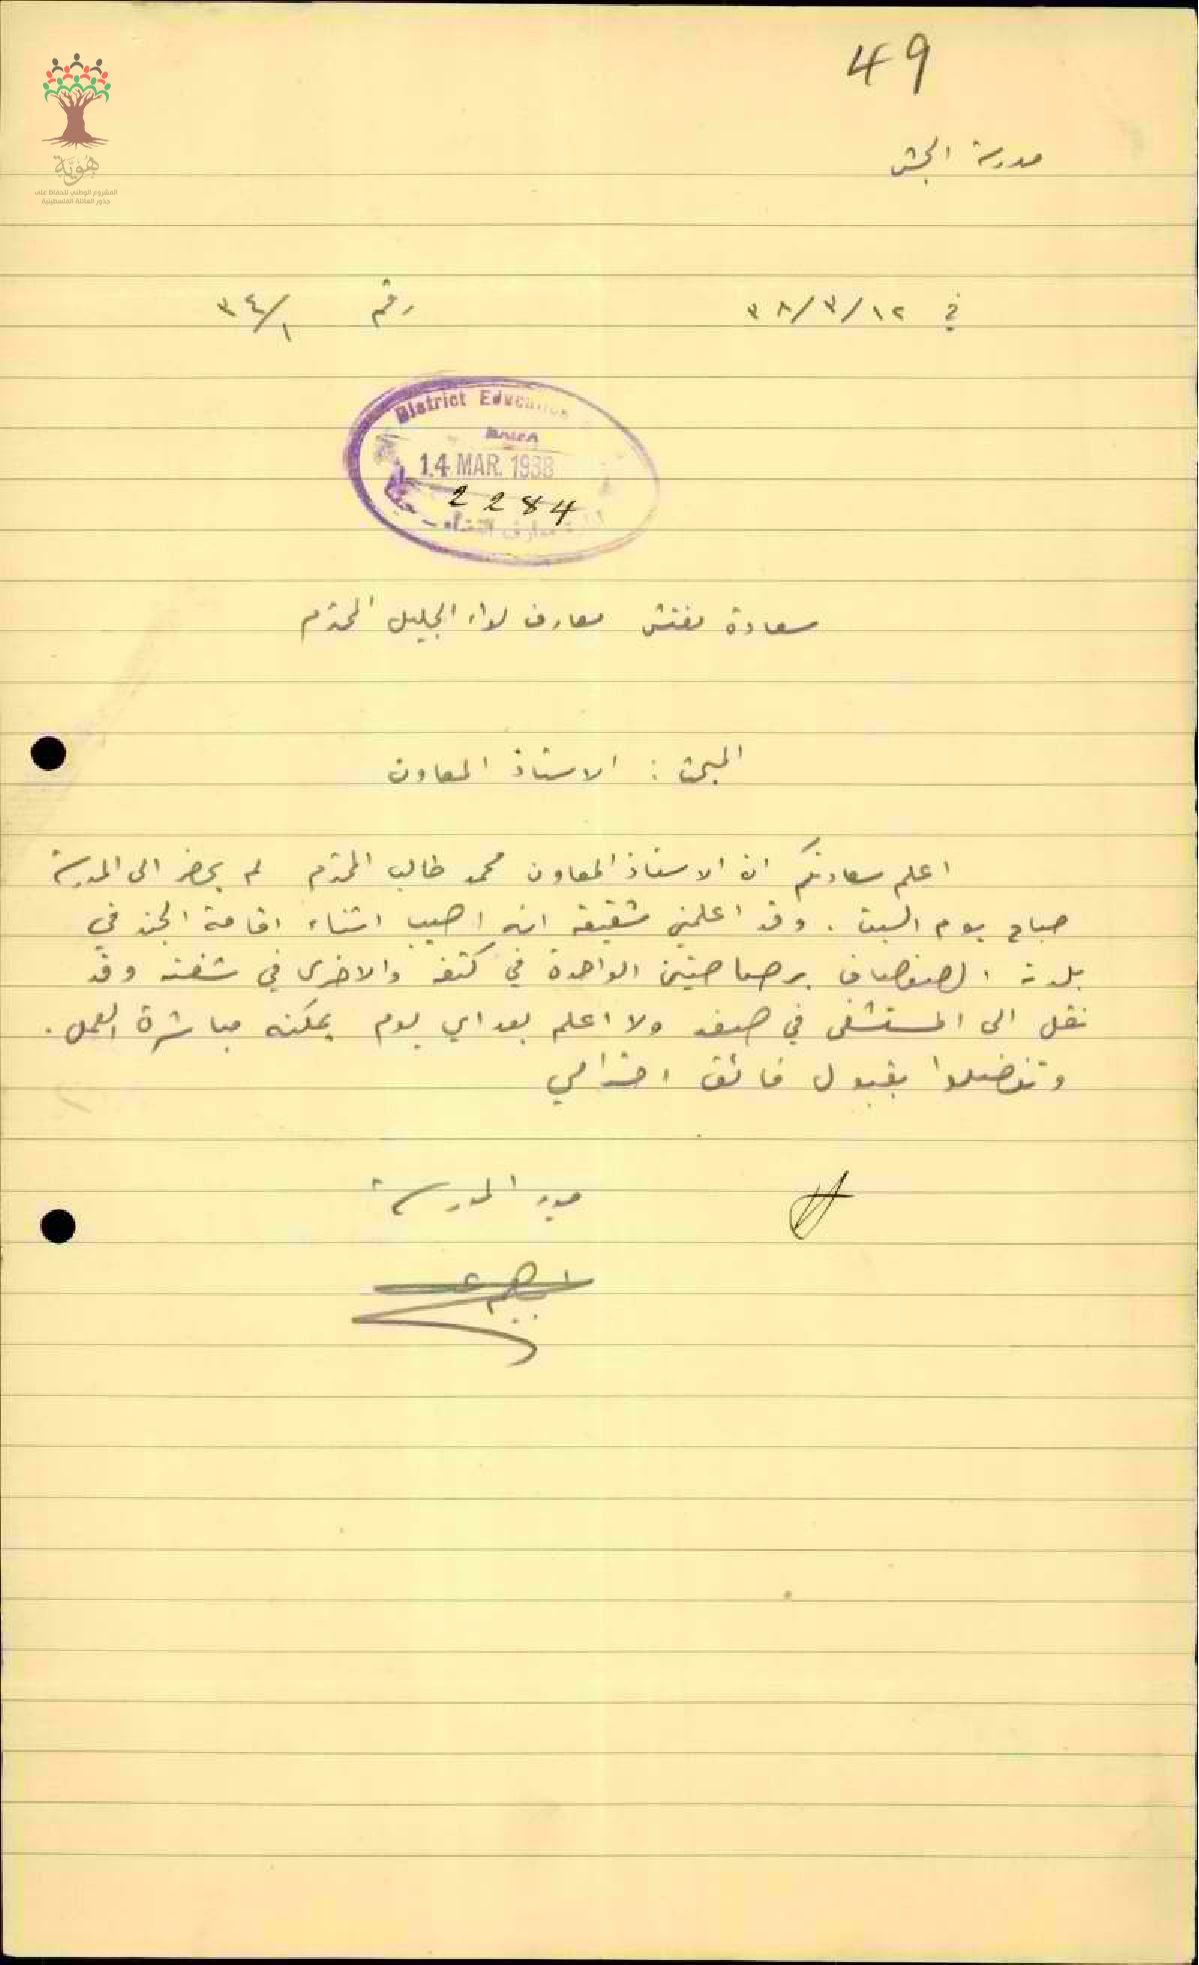 49
هوية
المشروع الوطني للحفاظ على
جذور العائلة الفلسطينية
مدرسة الجش
في ١٢/٣/٣٨
رقم ٣٤/١
District Education
14 MAR. 1938
2284
ادارة معارف القضاء - حيفا
سعادة مفتش معارف لواء الجليل المحترم
المبحث : الاستاذ المعاون
اعلم سعادتكم ان الاستاذ المعاون محمد طالب المحترم لم يحضر الى المدرسة
صباح يوم السبت . وقد اعلمني شقيقه انه اصيب اثناء اقامة الجند في
بلدته الصفصاف برصاصتين الواحدة في كتفه والاخرى في شفته وقد
نقل الى المستشفى في صفد ولا اعلم بعد اي يوم يمكنه مباشرة العمل .
وتفضلوا بقبول فائق احترامي
مدير المدرسة